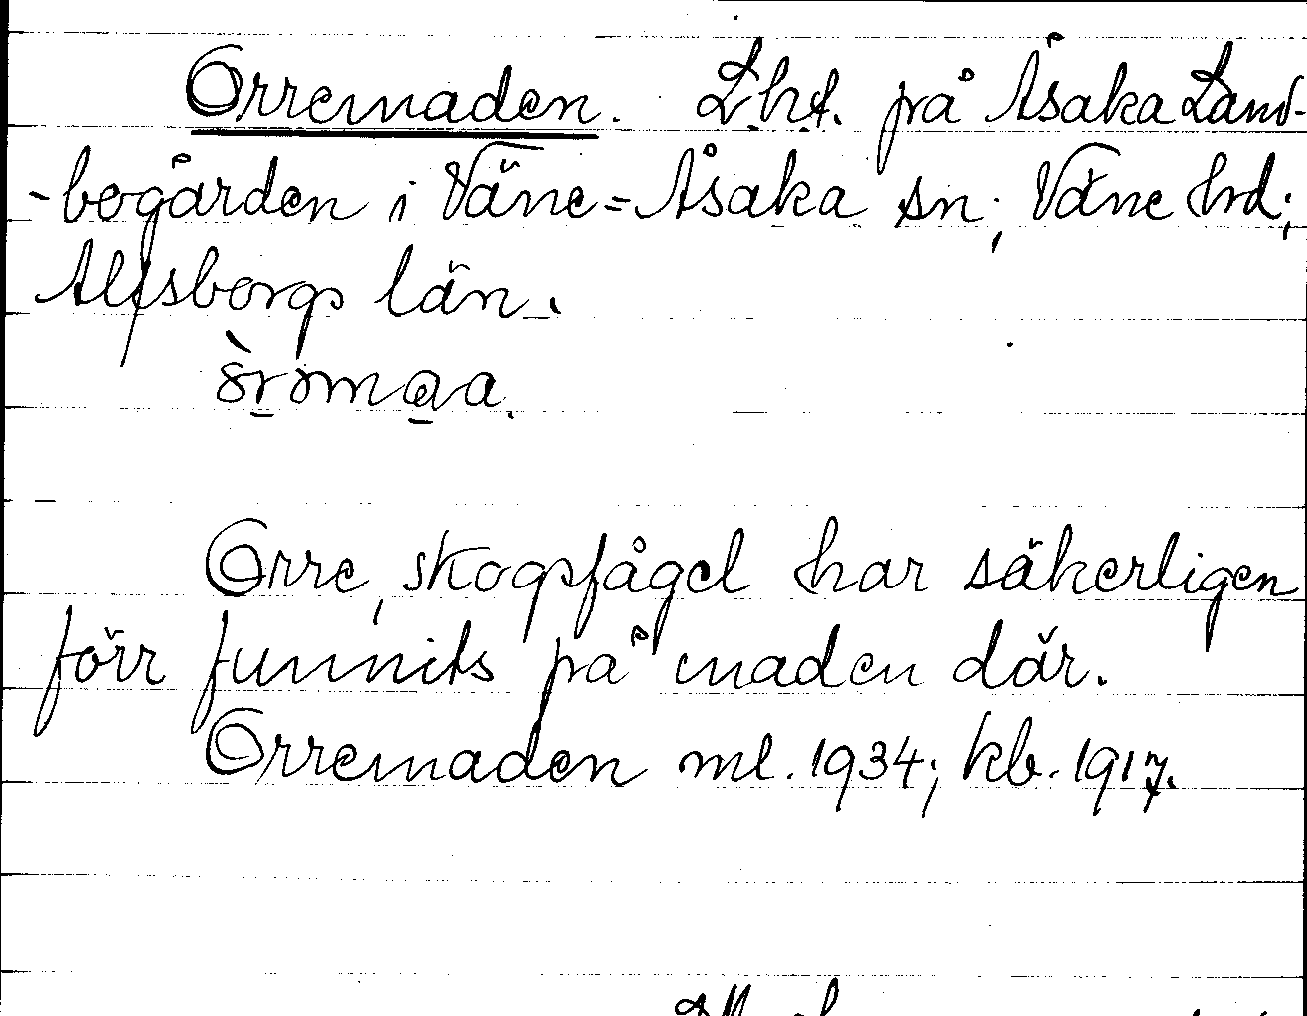 Orremaden. L.h.t. på Åsaka Land-
-bogården i Väne=Åsaka sn; Väne hrd;
Älfsborgs län.
Orre, skogsfågel har säkerligen
förr funnits på maden där.
Orremaden ml. 1934; kb. 1917.